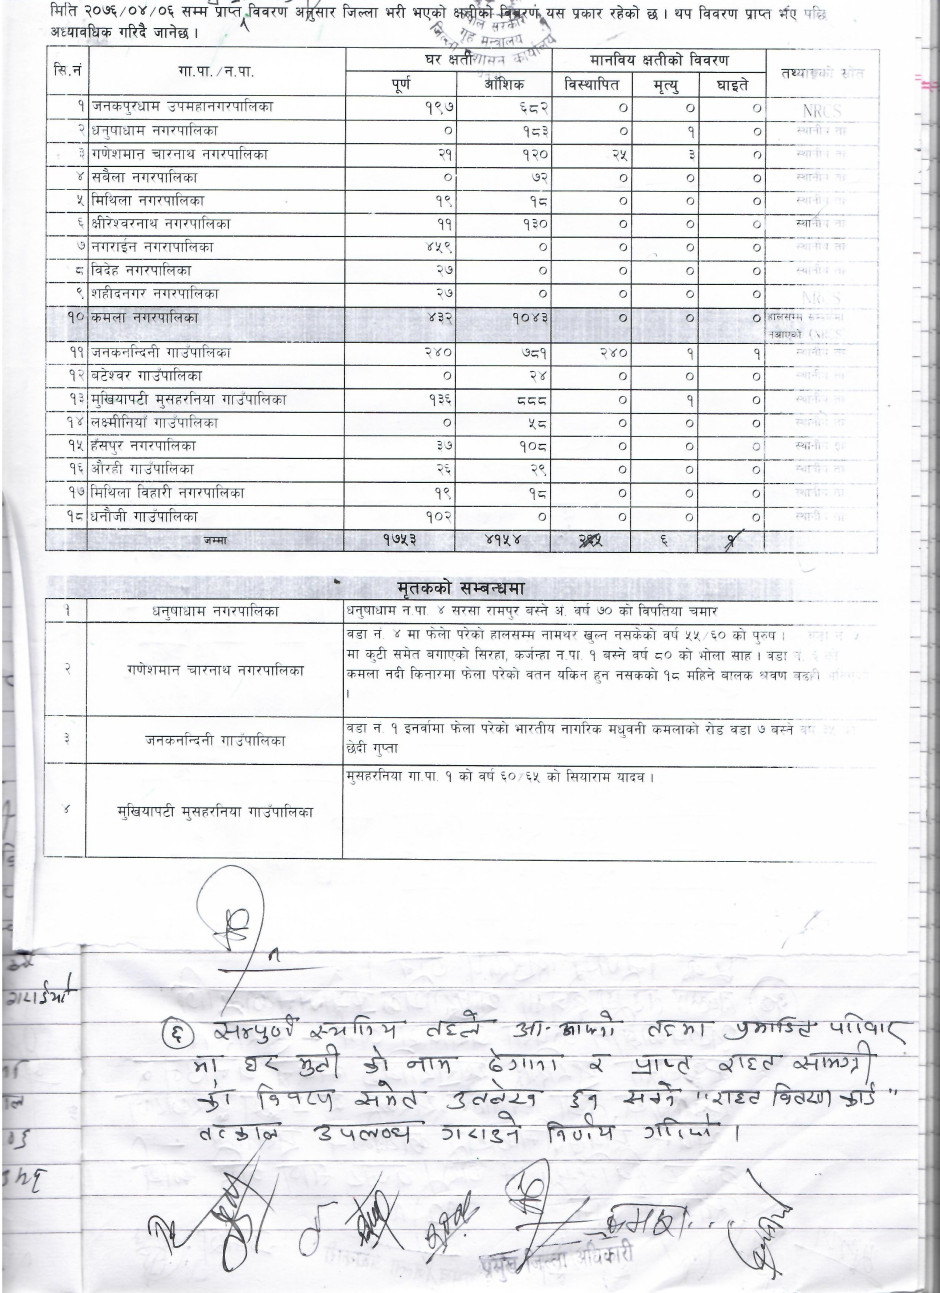 मिति २०७६/०४/०६ सम्म प्राप्त विवरण अनुसार जिल्ला भरी भएको क्षतीको विवरण यस प्रकार रहेको छ । थप विवरण प्राप्त भए पछि
अध्यावधिक गरिदै जानेछ ।
सि.नं गा.पा./न.पा. घर क्षती मानविय क्षतीको विवरण तथ्याङ्कको स्रोत
पूर्ण आँशिक विस्थापित मृत्यु घाइते
१ जनकपुरधाम उपमहानगरपालिका १९७ ६८२ ० ० ० NRCS
२ धनुषाधाम नगरपालिका ० १८३ ० १ ०
३ गणेशमान चारनाथ नगरपालिका २१ १२० २५ ३ ०
४ सबैला नगरपालिका ० ७२ ० ० ०
५ मिथिला नगरपालिका १९ १८ ० ० ०
६ क्षीरेश्वरनाथ नगरपालिका ११ १३० ० ० ०
७ नगराईन नगरापालिका ४५९ ० ० ० ०
८ विदेह नगरपालिका २७ ० ० ० ०
९ शहीदनगर नगरपालिका २७ ० ० ० ० NRCS
१० कमला नगरपालिका ४३२ १०४३ ० ० ० हालसम्म
नआएको (NRCS
११ जनकनन्दिनी गाउँपालिका २४० ७८१ २४० १ १
१२ बटेश्वर गाउँपालिका ० २४ ० ० ०
१३ मुखियापटी मुसहरनिया गाउँपालिका १३६ ८८८ ० १ ०
१४ लक्ष्मीनियाँ गाउँपालिका ० ५८ ० ० ०
१५ हँसपुर नगरपालिका ३७ १०८ ० ० ०
१६ औरही गाउँपालिका २६ २९ ० ० ०
१७ मिथिला विहारी नगरपालिका १९ १८ ० ० ०
१८ धनौजी गाउँपालिका १०२ ० ० ० ०
जम्मा १७५३ ४१५४ ६ १
मृतकको सम्बन्धमा
१ धनुषाधाम नगरपालिका धनुषाधाम न.पा. ४ सरसा रामपुर बस्ने अं. वर्ष ७० को विपतिया चमार
२ गणेशमान चारनाथ नगरपालिका वडा नं. ४ मा फेला परेको हालसम्म नामथर खुल्न नसकेको वर्ष ५५/६० को पुरुष ।
मा कुटी समेत बगाएको सिरहा, कर्जन्हा न.पा. १ बस्ने वर्ष ८० को भोला साह । वडा नं.
कमला नदी किनारमा फेला परेको वतन यकिन हुन नसकको १८ महिने बालक श्रवण
।
३ जनकनन्दिनी गाउँपालिका वडा न. १ इनर्वामा फेला परेको भारतीय नागरिक मधुवनी कमलाको रोड वडा ७ बस्ने
छेदी गुप्ता
४ मुखियापटी मुसहरनिया गाउँपालिका मुसहरनिया गा.पा. १ को वर्ष ६०/६५ को सियाराम यादव ।
६ सम्पुर्ण स्थानिय तहले आ-आफ्नो तहमा प्रभावित परिवार
मा घर मुली को नाम ठेगाना र प्राप्त राहत सामग्री
को विवरण समेत उल्लेख हुन सक्ने "राहत वितरण कार्ड"
तत्काल उपलब्ध गराउने निर्णय गरियो ।
प्रमुख जिल्ला अधिकारी